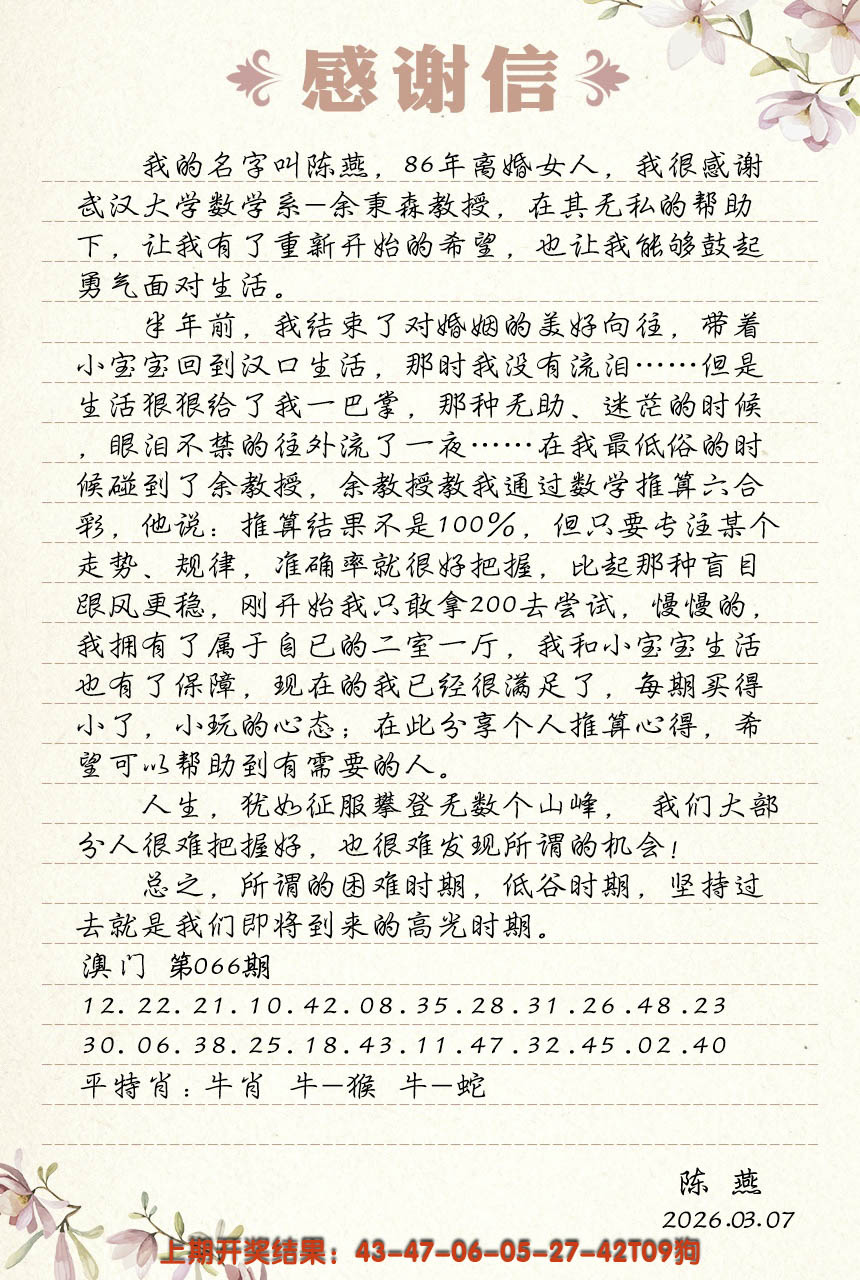 感谢信
我的名字叫陈燕，86年离婚女人，我很感谢
武汉大学数学系—余秉森教授，在其无私的帮助
下，让我有了重新开始的希望，也让我能够鼓起
勇气面对生活。
半年前，我结束了对婚姻的美好向往，带着
小宝宝回到汉口生活，那时我没有流泪……但是
生活狠狠给了我一巴掌，那种无助、迷茫的时候
，眼泪不禁的往外流了一夜……在我最低俗的时
候碰到了余教授，余教授教我通过数学推算六合
彩，他说：推算结果不是100%，但只要专注某个
走势、规律，准确率就很好把握，比起那种盲目
跟风更稳，刚开始我只敢拿200去尝试，慢慢的，
我拥有了属于自已的二室一厅，我和小宝宝生活
也有了保障，现在的我已经很满足了，每期买得
小了，小玩的心态；在此分享个人推算心得，希
望可以帮助到有需要的人。
人生，犹如征服攀登无数个山峰， 我们大部
分人很难把握好，也很难发现所谓的机会！
总之，所谓的困难时期，低谷时期，坚持过
去就是我们即将到来的高光时期。
澳门 第066期
12.22.21.10.42.08.35.28.31.26.48.23
30.06.38.25.18.43.11.47.32.45.02.40
平特肖：牛肖 牛—猴 牛—蛇
陈 燕
2026.03.07
上期开奖结果：43-47-06-05-27-42T09狗